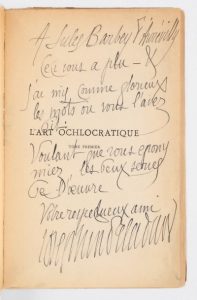 A Jules Barbey d'Aurévilly
Ceci vous a plu – &
j'ai mis comme glorieux
les mots où vous l'avez
dit.
L'ART OCHLOCRATIQUE
TOME PREMIER
Voulant que vous
les deux
de l'œuvre
Votre respectueux ami
Joséphin Péladan